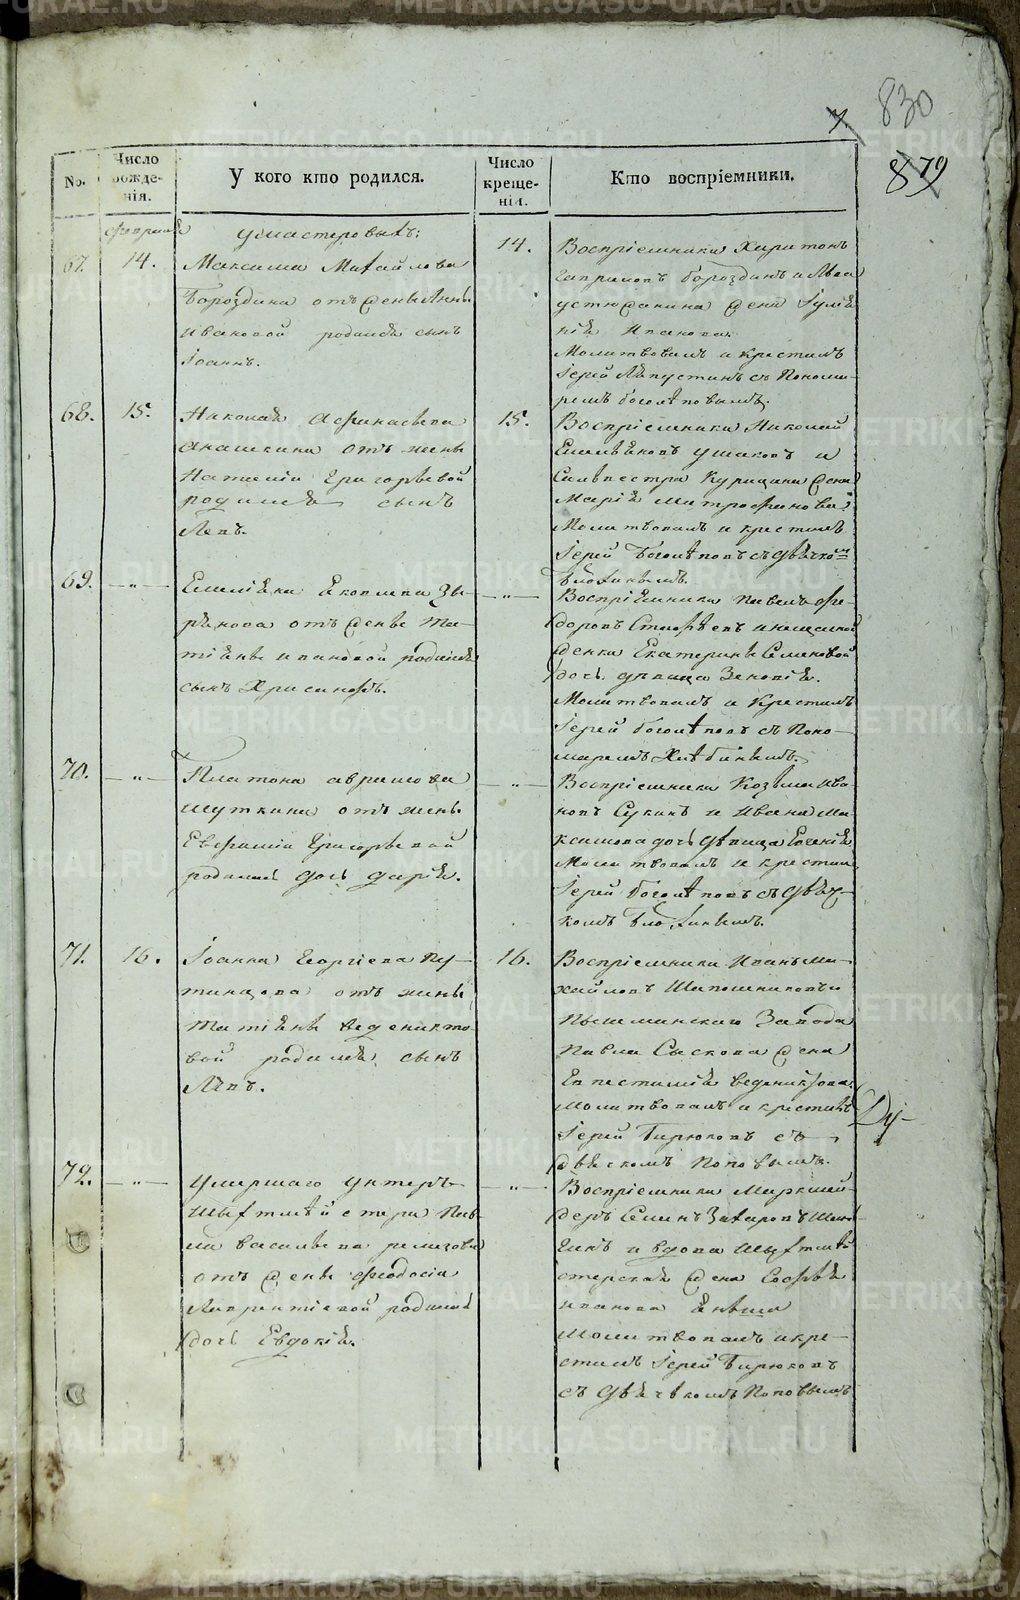 830
7.
879
No.
Число рожде-нія.
У кого кто родился.
Число креще-нія.
Кто воспріемники.
февраля
у мастеровыхъ:
67. 14.
Максима Михайлова
Бороздина отъ жены Анны
Ивановой родился сынъ
Іоаннъ.
14.
Воспріемники Харитонъ
Бороздинъ и
жена Іулія
нія Иванова.
Молитвовалъ и крестилъ
Іерей Ляпустинъ съ Понома-
ремъ боголѣповымъ.
68. 15.
Николая Афонасьева
Анашкина отъ жены
Наталіи Григорьевой
родился сынъ
Левъ.
15.
Воспріемники Николай
Емельяновъ Ушаковъ и
Сильвестра Курицина жена
Марія Митрофанова.
Молитвовалъ и крестилъ
Іерей Боголѣповъ съ дьячкомъ
69. — „ —
Емеліяна Яковлева Зы-
рянова отъ жены Та-
тіяны Ивановой родился
сынъ Хрисанфъ.
— „ —
Воспріемники Павелъ Фе-
доровъ и
женки Екатерины Семеновой
дочь дѣвица Зеновія.
Молитвовалъ и крестилъ
Іерей боголѣповъ съ Поно-
маремъ Хлѣбинымъ.
70. — „ —
Платона Аврамова
Шуткина отъ жены
Евфиміи Григорьевой
родилась дочь Дарья.
— „ —
Воспріемники Козьма Ива-
новъ Сукинъ и Ивана Ма-
ксимова дочь дѣвица Евгенія
Молитвовалъ и крестилъ
Іерей боголѣповъ съ дьяч-
комъ
71. 16.
Іоанна Георгіева Пу-
тинцова отъ жены
Татіяны Ведениктo-
вой родился сынъ
Левъ.
16.
Воспріемники Иванъ Ми-
хайловъ Шапошниковъ и
Пышминскаго Завода
Павла Сыскова жена
Евпестимія Веденихтова.
Молитвовалъ и крестилъ
Іерей Бирюковъ съ
дьячкомъ Поповымъ.
72. — „ —
Умершаго Унтеръ-
Шихтмейстера Пав-
ла Васильева Ремизова
отъ жены Феодосіи
Лаврентіевой родилась
дочь Евдокія.
— „ —
Воспріемники Маркшей-
деръ Семенъ Захаровъ
и вдова Шихтмей-
стерская жена Софья
Иванова
Молитвовалъ и кре-
стилъ Іерей Бирюковъ
съ дьячкомъ Поповымъ